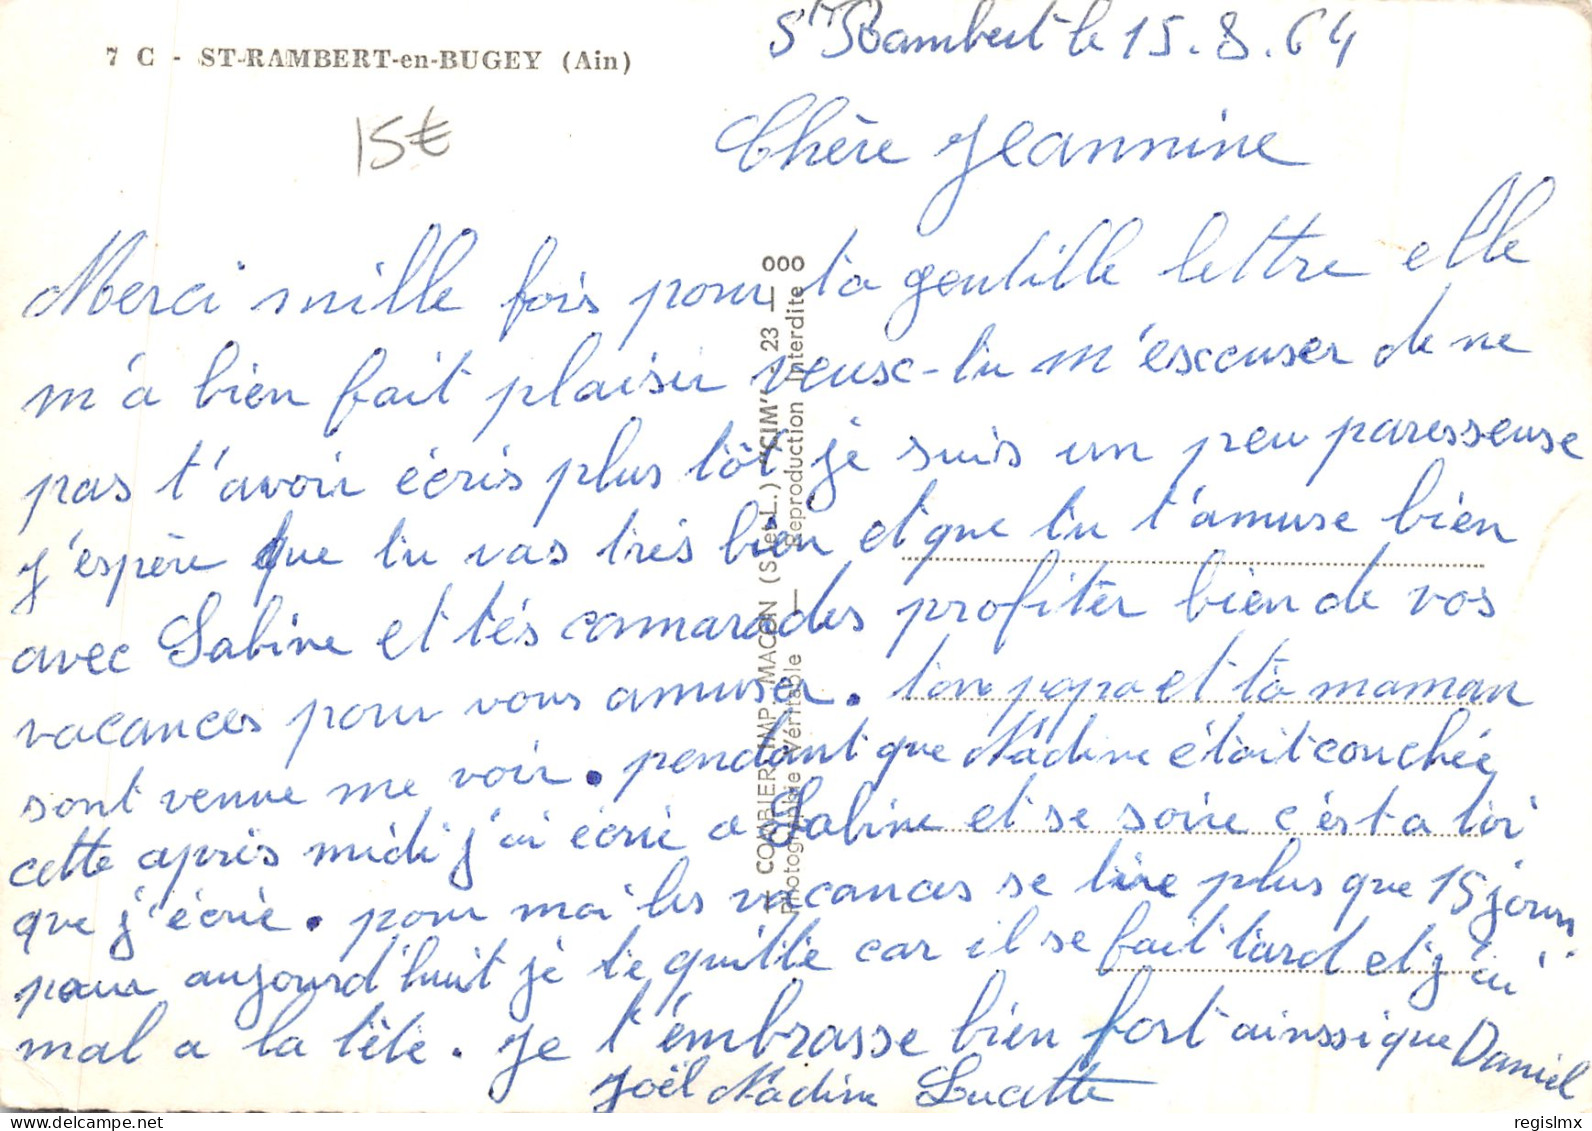 7 C - ST-RAMBERT-en-BUGEY (Ain)
St Rambert le 15.8.64
15€
Chère Jeannine
Merci mille fois pour ta gentille lettre elle
m'a bien fait plaisir veusc-tu m'escuser de ne
pas t'avoir écris plus tôt je suis un peu paresseuse
j'espère que tu vas très bien et que tu t'amuse bien
avec Sabine et tés camarades profiter bien de vos
vacances pour vous amuser. ton papa et ta maman
sont venue me voir. pendant que Nadine était couchée
cette après midi j'ai écrie a Sabine et se soire c'ést a toi
que j'écrie. pour moi les vacances se tire plus que 15 jours
pour aujourd'huit je te quitte car il se fait tard et j'ai
mal a la tête. Je t'émbrasse bien fort ainssi que Daniel
Joël Nadine Lucette
COMBIER IMP. MACON (S.-et-L.) "CIM" - 23 - ooo
Photographie Véritable — Reproduction Interdite o
regislmx